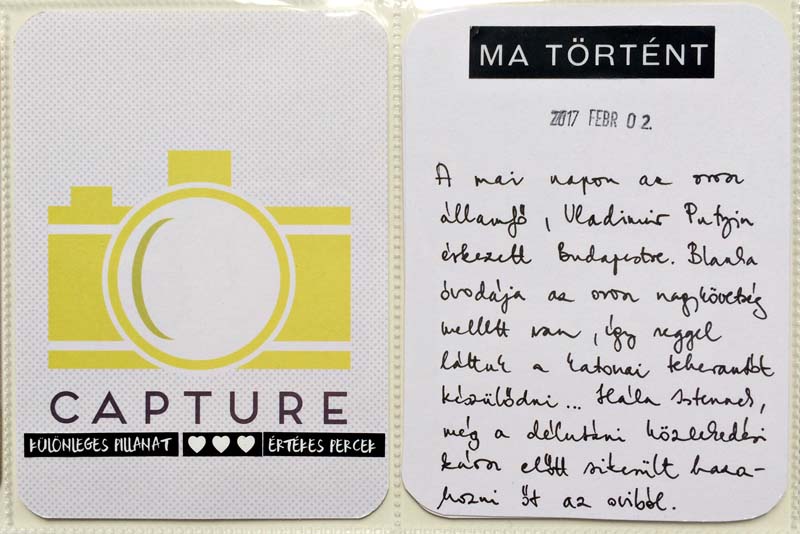 CAPTURE
KÜLÖNLEGES PILLANAT ÉRTÉKES PERCEK
MA TÖRTÉNT
2017 FEBR 02.
A mai napon az orosz
államfő, Vladimir Putyin
érkezett Budapestre. Blanka
óvodája az orosz nagykövetség
mellett van, így reggel
láttuk a katonai teherautót
készülődni... Hála Istennek,
még a délutáni közlekedési
káosz előtt sikerült haza-
hozni őt az oviból.